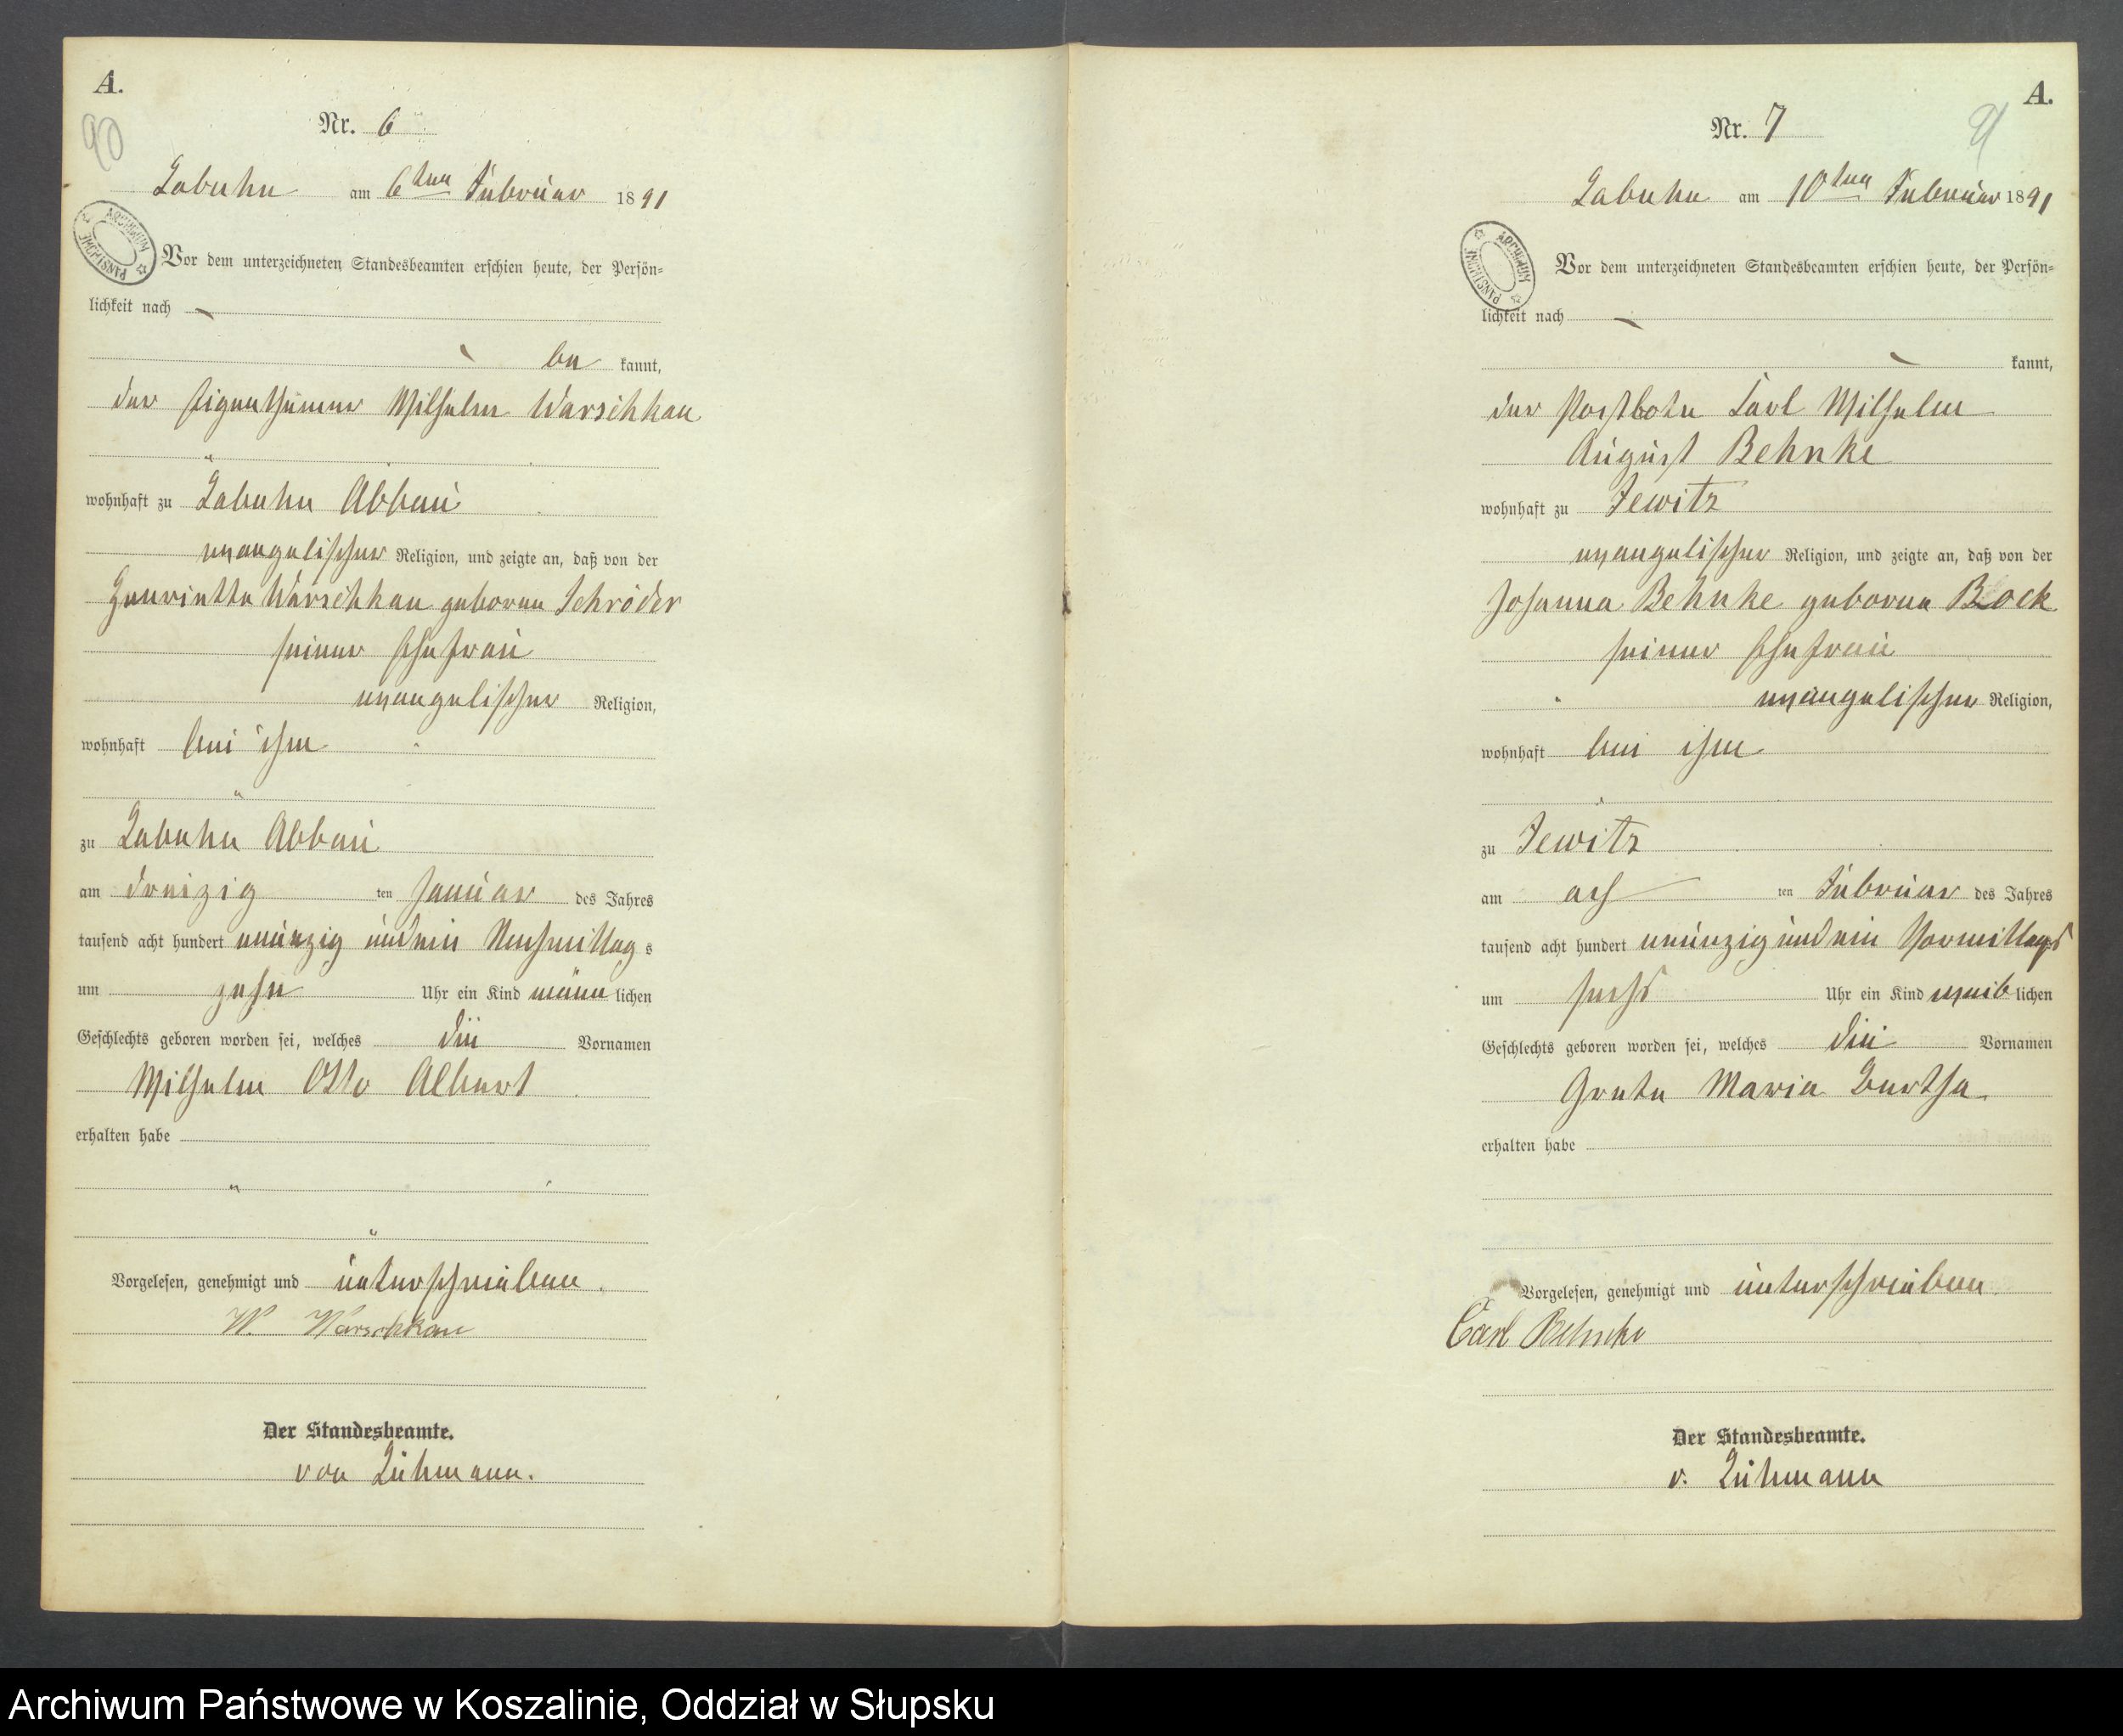 A.
90
Nr. 6
Labuhn am 6ten Februar 1891
ARCHIWUM PAŃSTWOWE
Vor dem unterzeichneten Standesbeamten erschien heute, der Persön=
lichkeit nach
be kannt,
der Eigenthümer Wilhelm Warschkau
wohnhaft zu Labuhn Abbau
evangelischer Religion, und zeigte an, daß von der
Henriette Warschkau geborene Schröder
seiner Ehefrau
evangelischer Religion,
wohnhaft bei ihm
zu Labuhn Abbau
am dreizig ten Januar des Jahres
tausend acht hundert neunzig undein Nachmittag s
um zehn Uhr ein Kind männ lichen
Geschlechts geboren worden sei, welches die Vornamen
Wilhelm Otto Albert
erhalten habe
Vorgelesen, genehmigt und unterschrieben.
W. Warschkau
Der Standesbeamte.
von Lühmann.
A.
91
Nr. 7
Labuhn am 10ten Februar 1891
ARCHIWUM PAŃSTWOWE
Vor dem unterzeichneten Standesbeamten erschien heute, der Persön=
lichkeit nach
kannt,
der Postbote Carl Wilhelm
August Behnke
wohnhaft zu Jewitz
evangelischer Religion, und zeigte an, daß von der
Johanna Behnke geborene Bock
seiner Ehefrau
evangelischer Religion,
wohnhaft bei ihm
zu Jewitz
am ach ten Februar des Jahres
tausend acht hundert neunzig undein Vormittags
um sechs Uhr ein Kind weib lichen
Geschlechts geboren worden sei, welches die Vornamen
Grete Maria Bertha
erhalten habe
Vorgelesen, genehmigt und unterschrieben
Carl Behnke
Der Standesbeamte.
v. Lühmann
Archiwum Państwowe w Koszalinie, Oddział w Słupsku